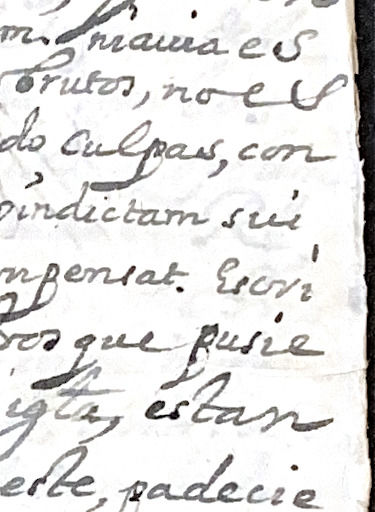 m. niauia es
brutos, no es
do culpas, con
vindictam sui
mpensat. Escri
ros que pusie
igta, estan
este, padecie